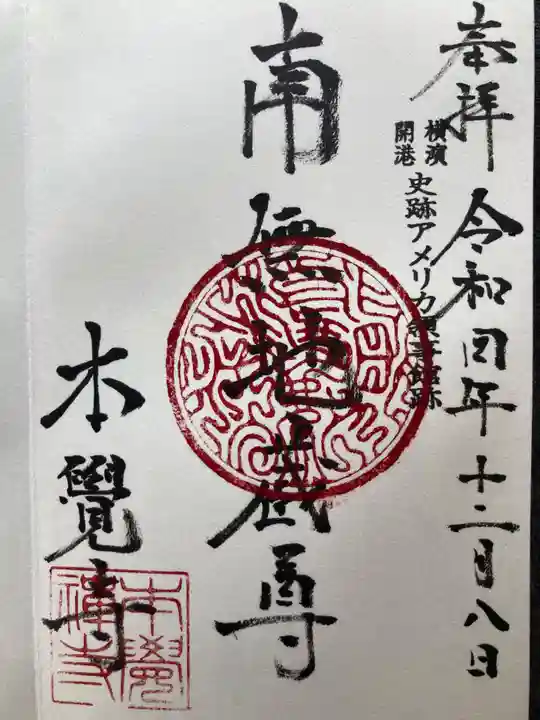 奉拝
横濱
開港
史跡アメリカ領事館跡
令和四年十二月八日
南無地蔵尊
本覺寺
本覺
禅寺